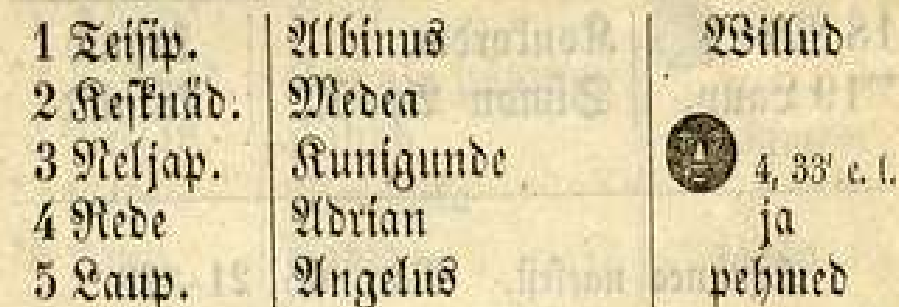 1 Teisip. Albinus Willud
2 Kesknäd. Medea
3 Neljap. Kunigunde 4, 33' e. l.
4 Rede Adrian ja
5 Laup. Angelus pehmed